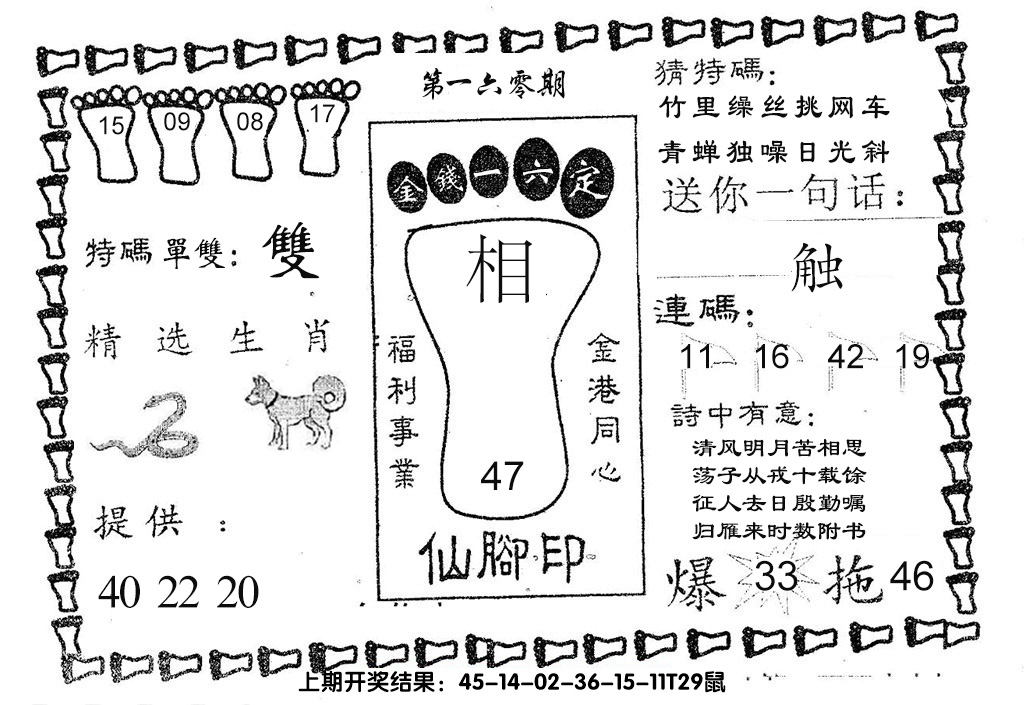 第一六零期
15 09 08 17
特碼單雙：雙
精选生肖
提供：
40 22 20
金錢一六定
相
福利事業
金港同心
47
仙腳印
猜特碼：
竹里缲丝挑网车
青蝉独噪日光斜
送你一句话：
触
連碼：
11 16 42 19
詩中有意：
清风明月苦相思
荡子从戎十载馀
征人去日殷勤嘱
归雁来时数附书
爆 33 拖 46
上期开奖结果：45-14-02-36-15-11T29鼠